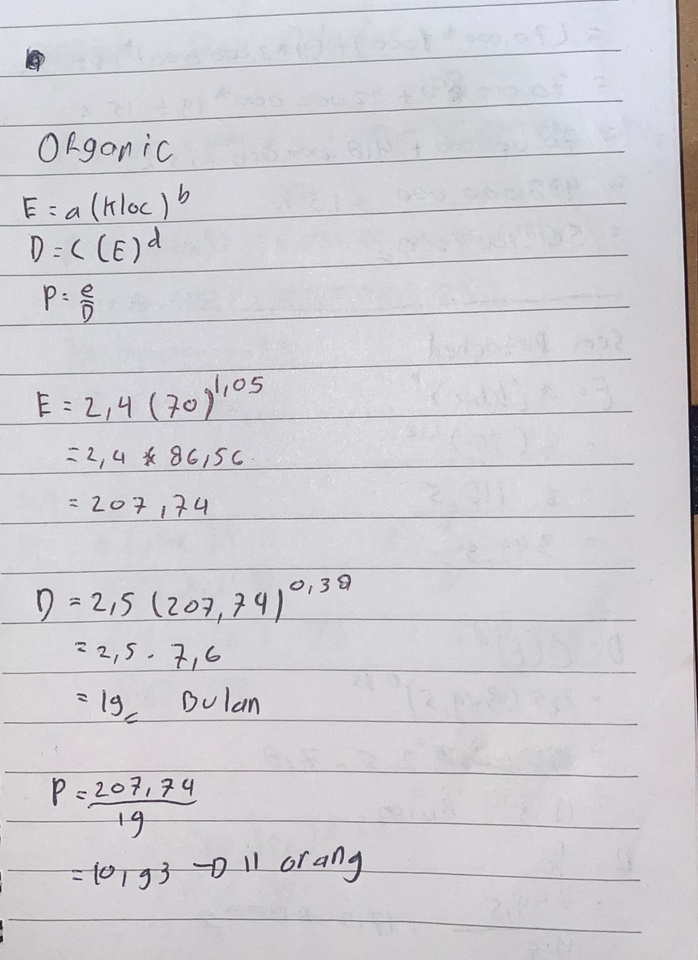 Organic
E = a (Kloc)^b
D = C (E)^d
P = e/D
E = 2,4 (70)^1,05
= 2,4 * 86,56
= 207,74
D = 2,5 (207,74)^0,38
= 2,5 . 7,6
= 19 Bulan
P = 207,74 / 19
= 10,93 → 11 orang